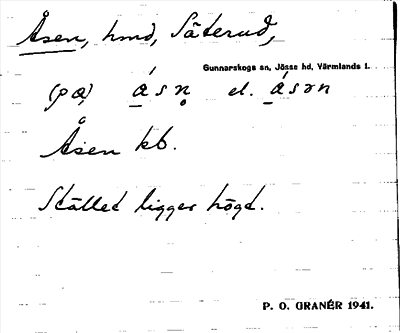 Åsen, hmd, Säterud,
Gunnarskogs sn, Jösse hd, Värmlands l.
(pa) á s n̥ el. á s ə n
Åsen kb.
Stället ligger högt.
P. O. GRANÉR 1941.